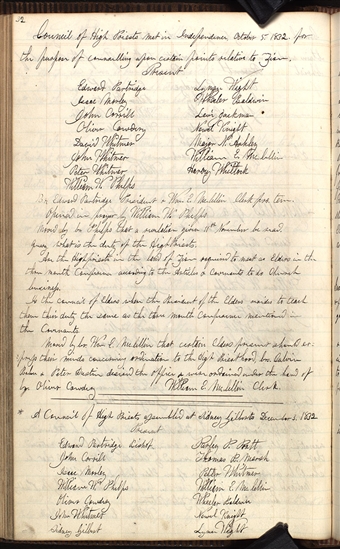 32
Council of High Priests met in Independence October 5 1832 for
the purpose of councelling upon certain points relative to Zion.
Present
Edward Partridge Lyman Wight
Isaac Morley Wheeler Baldwin
John Corrill Levi Jackman
Oliver Cowdery Newel Knight
David Whitmer Major N. Ashley
John Whitmer William E. McLellin
Peter Whitmer Harvey Whitlock
William W. Phelps
Br Edward Partridge President & Wm E. McLellin Clerk pro. tem.
Opened in prayer by William W. Phelps.
Moved by br. Phelps that a revelation given Novembr be read
query what is the duty of the High Priests.
Are the High priests in the land of Zion required to meet as Elders in the
three month Conference according to the Articles & Covenants to do Church
business
Is the council of Elders when the President of the Elders wishes to teach
them their duty the same as the three month Conference mentioned in
the Covenants
Moved by br. Wm E. McLellin that certain Elders present should ex-
press their minds concerning ordination to the High Priesthood, brs. Calvin
and Peter Dustin desired the office & were ordained under the hand of
br Oliver Cowdery William E. McLellin Clerk
* A Council of High Priests assembled at Sidney Gilberts December 3, 1832
Present
Edward Partridge Bishop Parley P. Pratt
John Corrill Thomas B. Marsh
Isaac Morley Peter Whitmer
William W. Phelps William E. McLellin
Oliver Cowdery Wheeler Baldwin
John Whitmer Newel Knight
Sidney Gilbert Lyman Wight